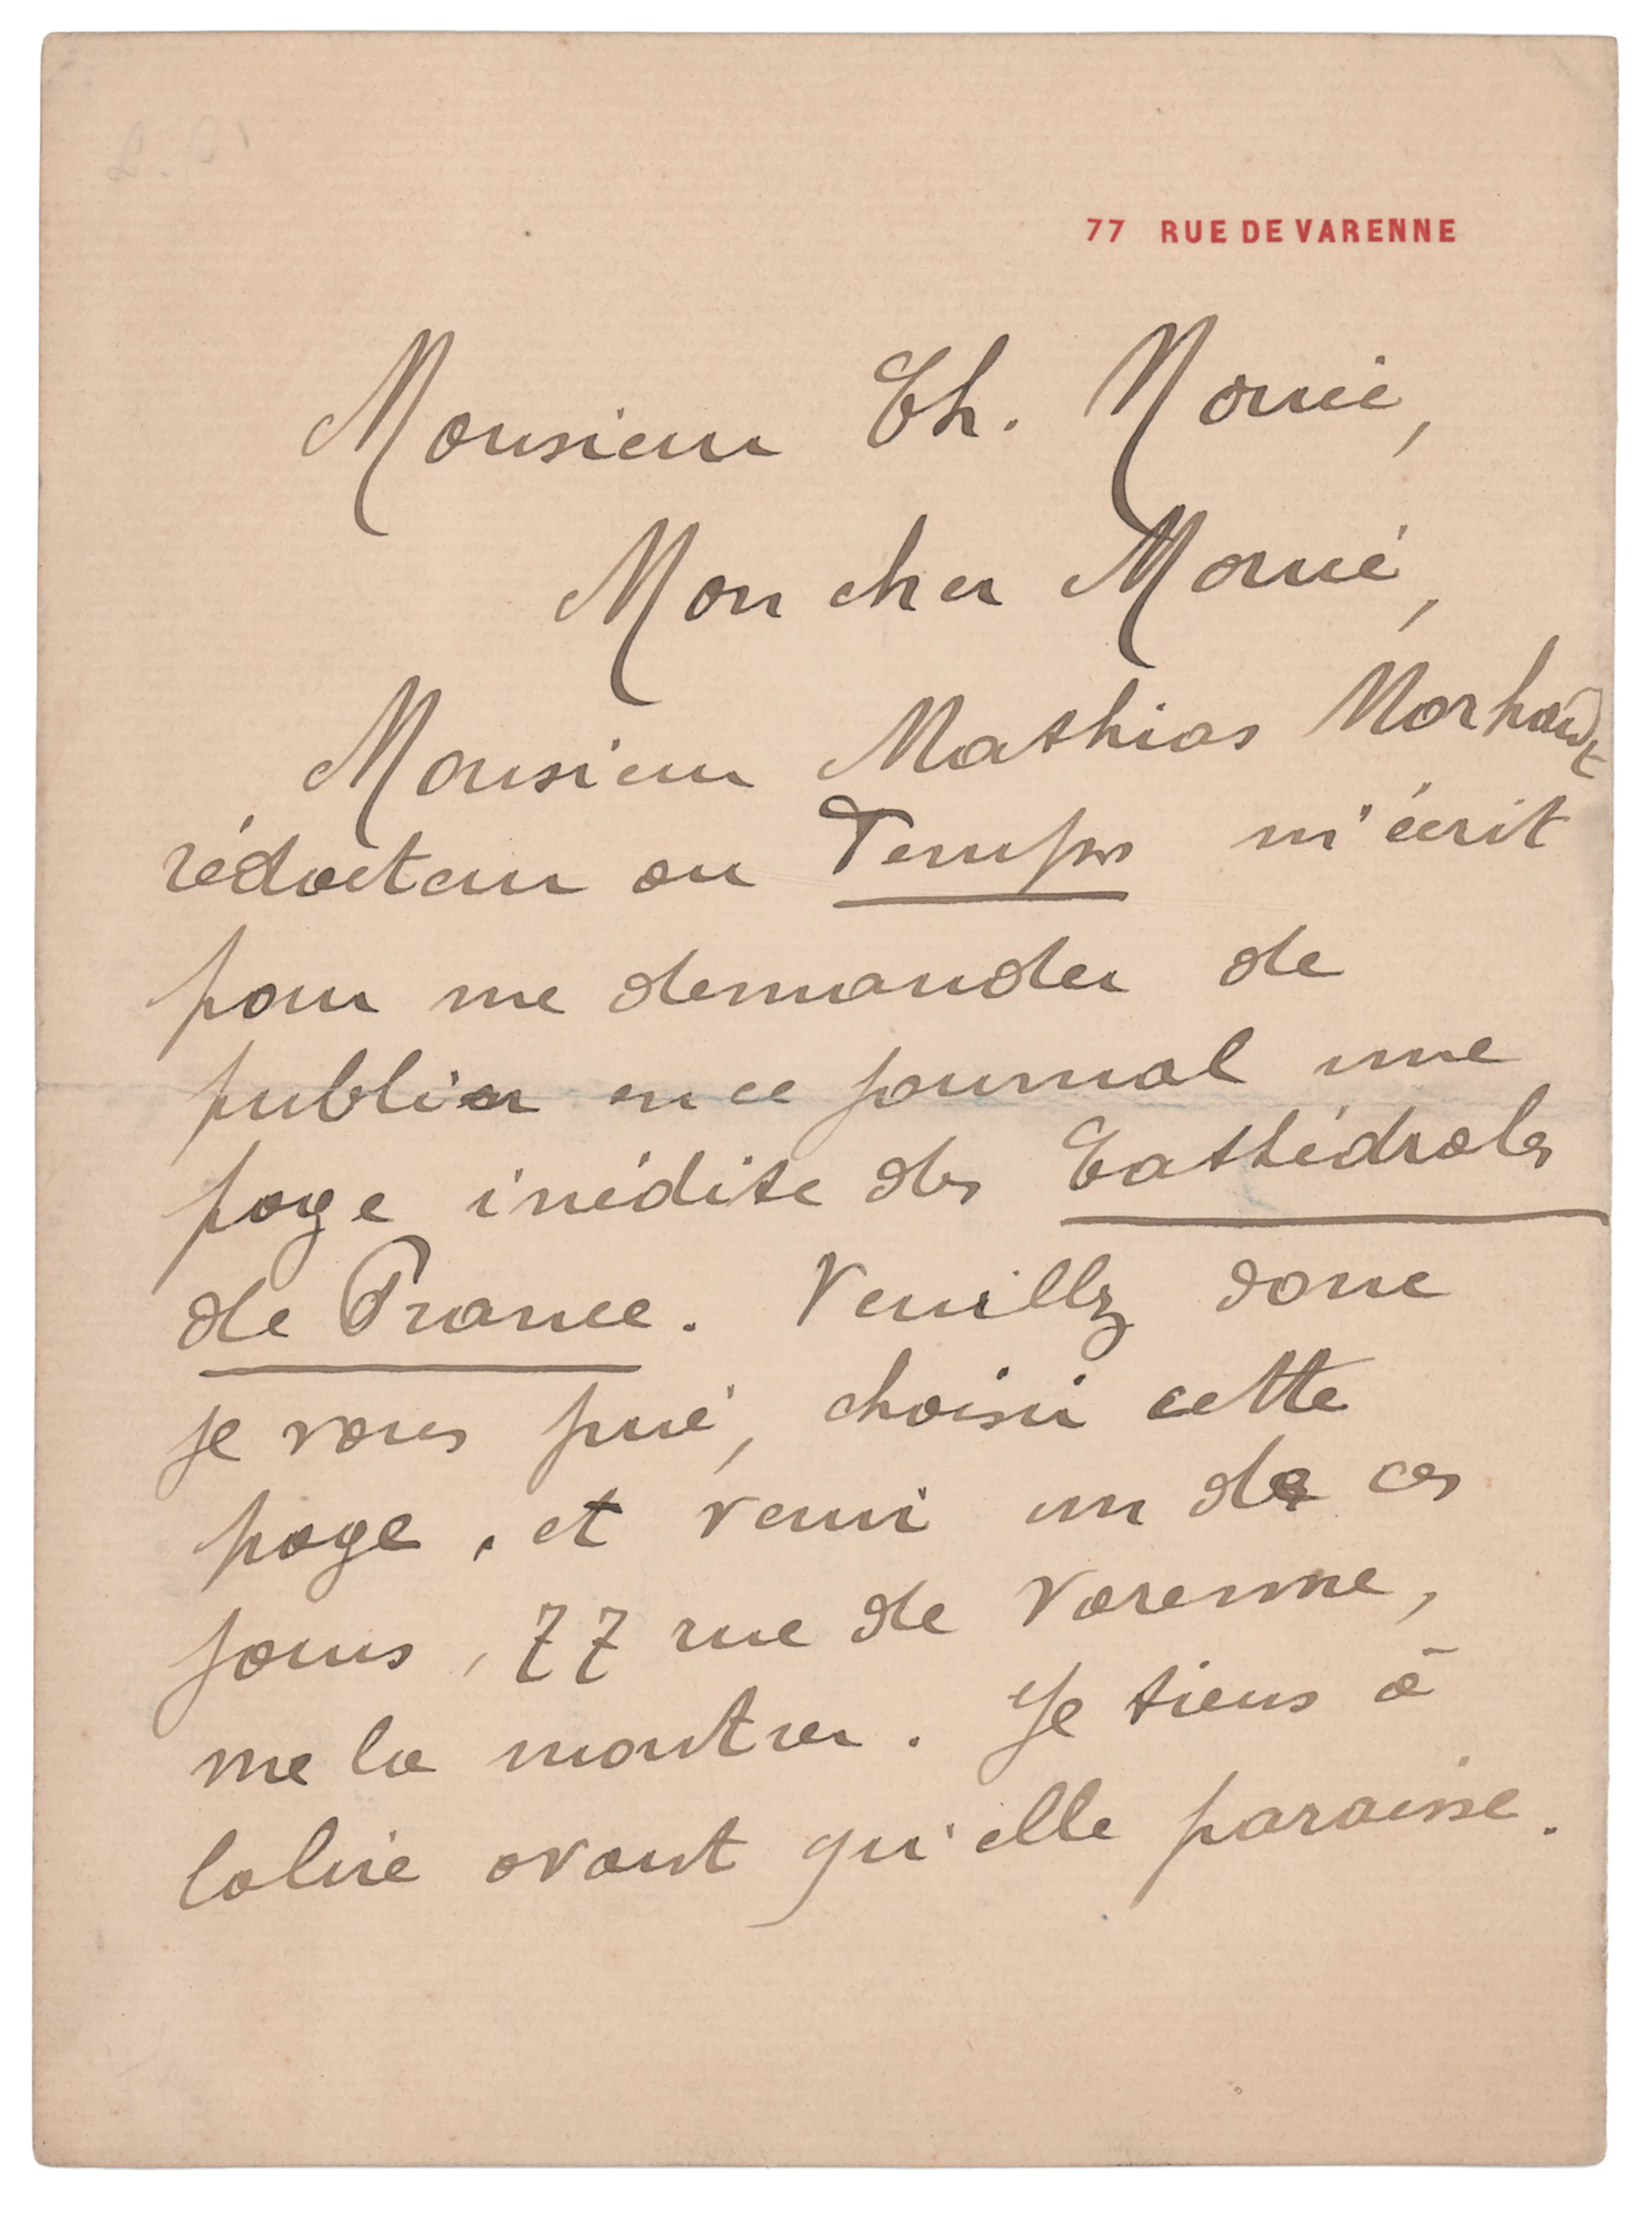 77 RUE DE VARENNE
Monsieur Ch. Morice,
Mon cher Morice,
Monsieur Mathias Morhardt
rédacteur au Temps m'écrit
pour me demander de
publier en ce journal une
page inédite des Cathédrales
de France. Veuillez donc
je vous prie, choisir cette
page, et venir un de ces
jours, 77 rue de Varenne,
me la montrer. Je tiens à
la lire avant qu'elle paraisse.